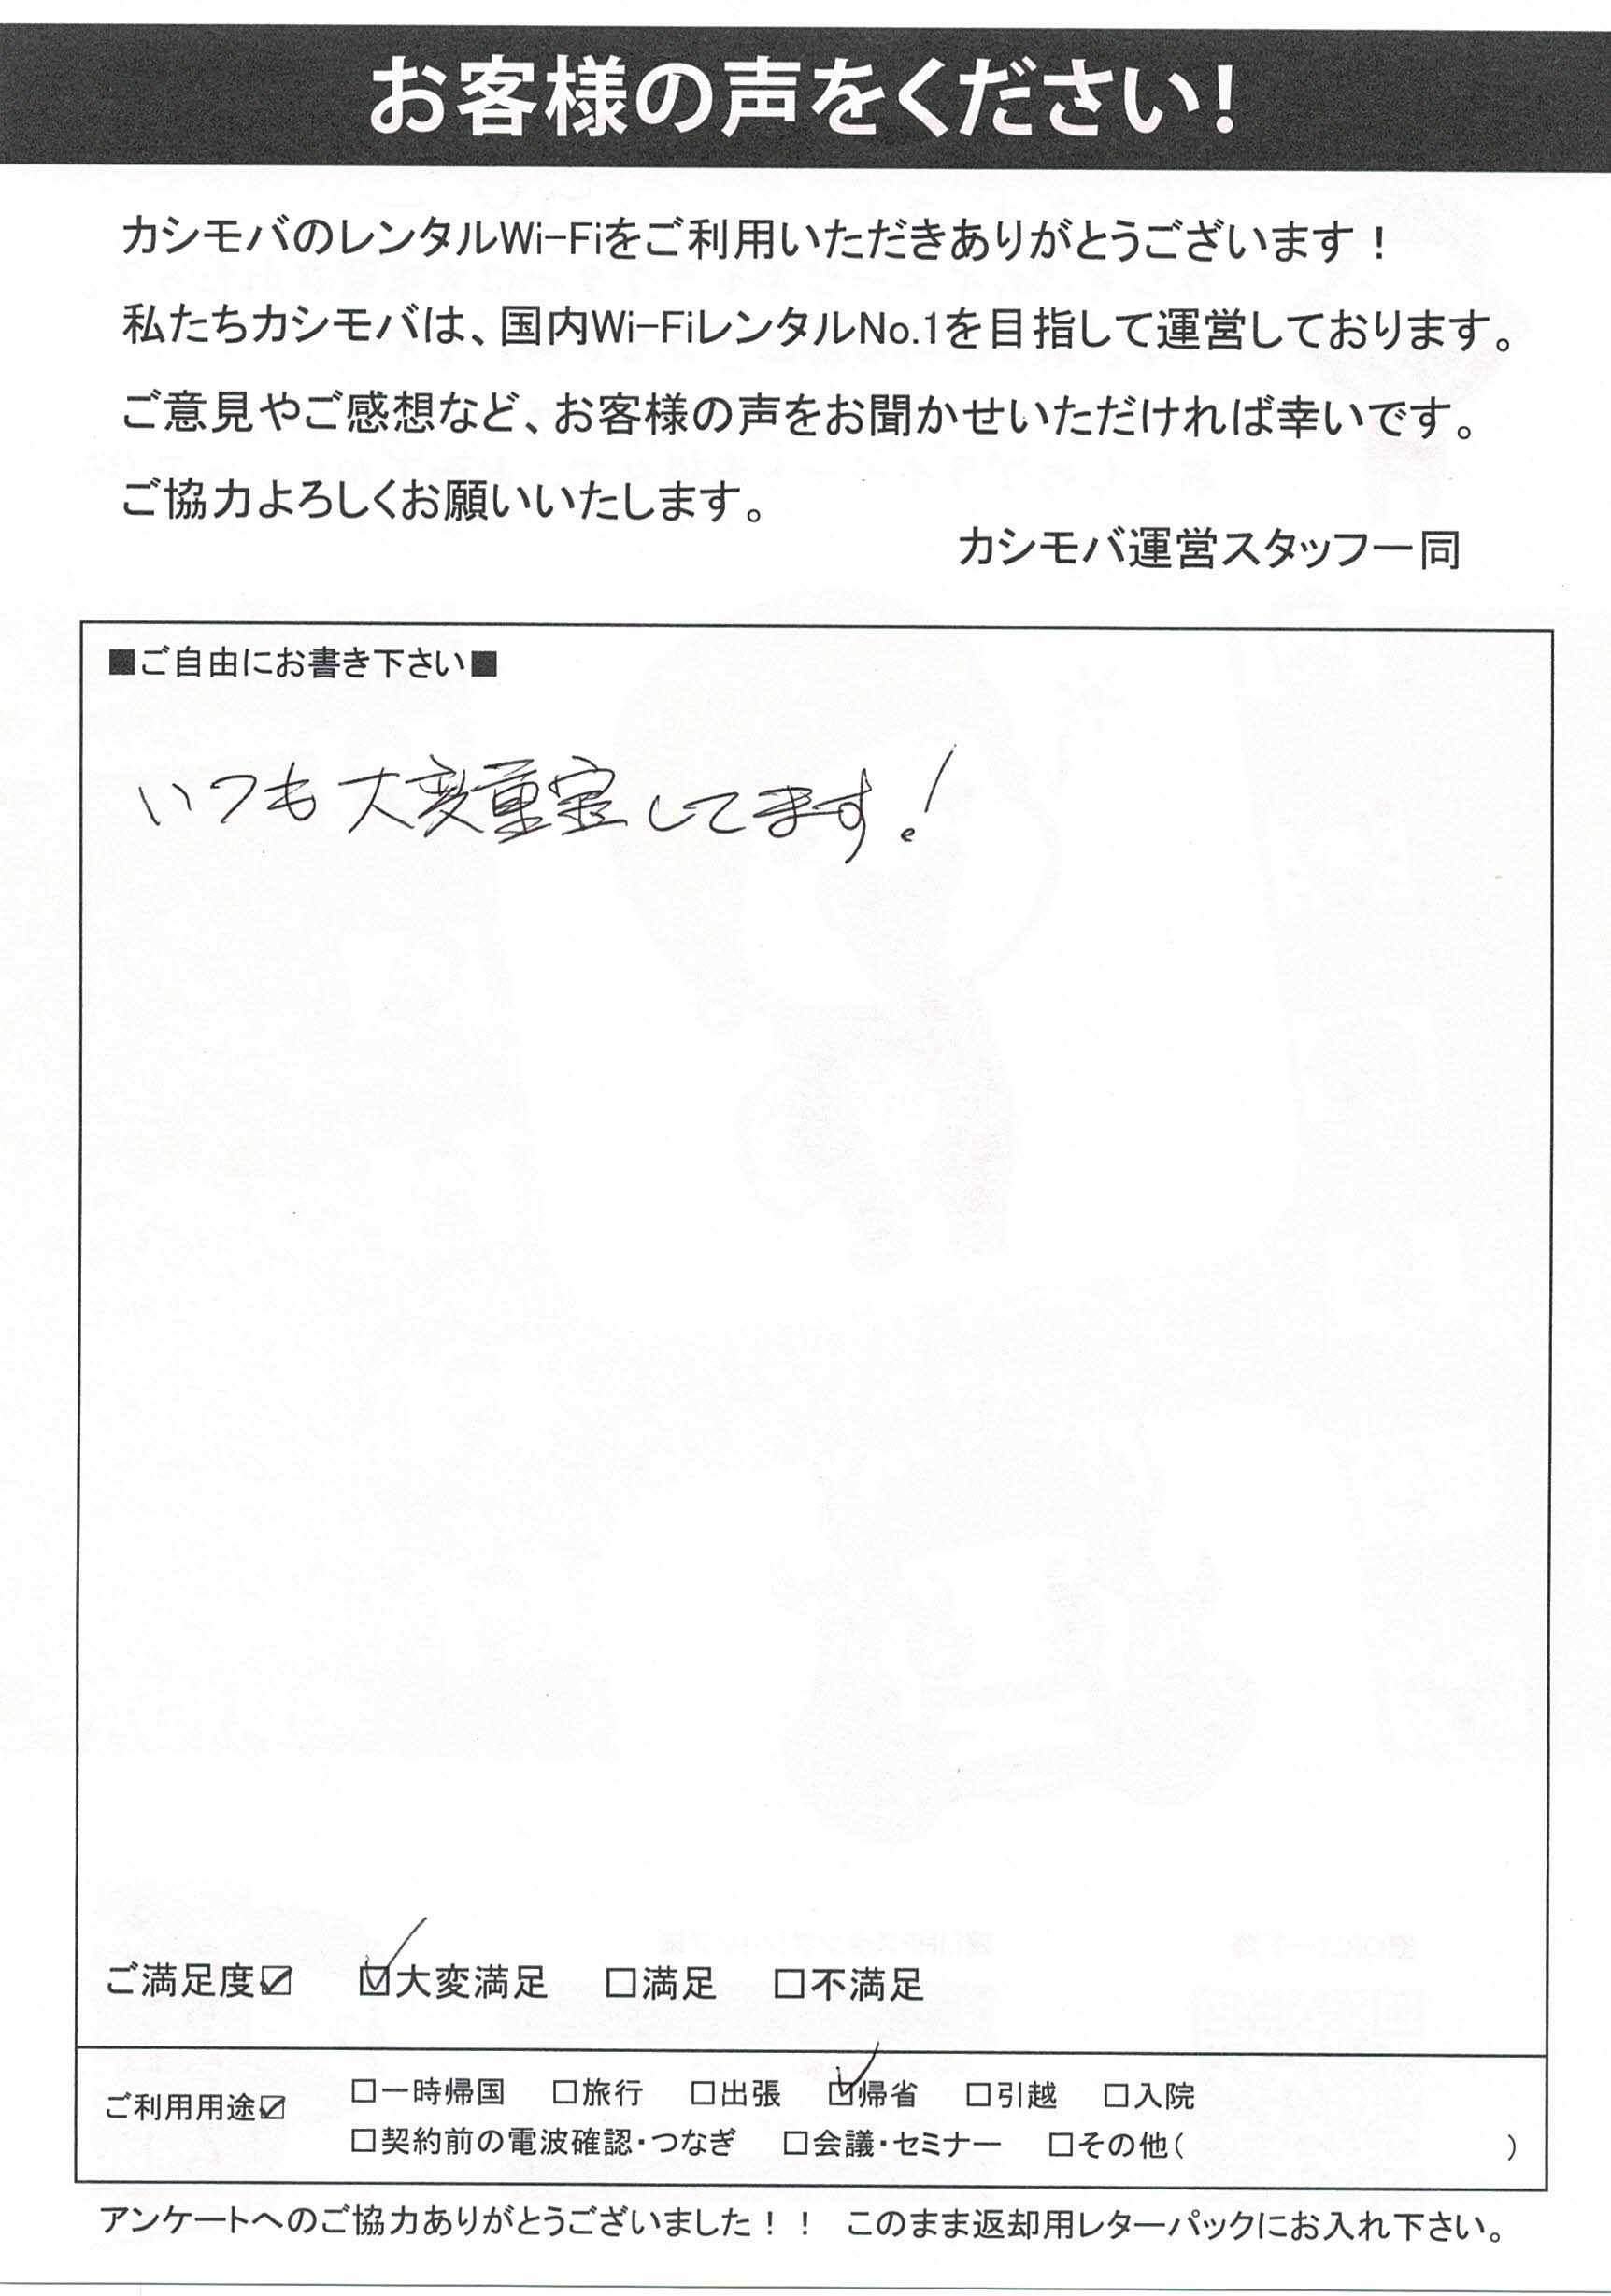 お客様の声をください!
カシモバのレンタルWi-Fiをご利用いただきありがとうございます！
私たちカシモバは、国内Wi-FiレンタルNo.1を目指して運営しております。
ご意見やご感想など、お客様の声をお聞かせいただければ幸いです。
ご協力よろしくお願いいたします。
カシモバ運営スタッフ一同
■ご自由にお書き下さい■
いつも大変重宝してます！
ご満足度☑ ☑大変満足 □満足 □不満足
ご利用用途☑ □一時帰国 □旅行 □出張 ☑帰省 □引越 □入院
□契約前の電波確認・つなぎ □会議・セミナー □その他（ ）
アンケートへのご協力ありがとうございました！！ このまま返却用レターパックにお入れ下さい。